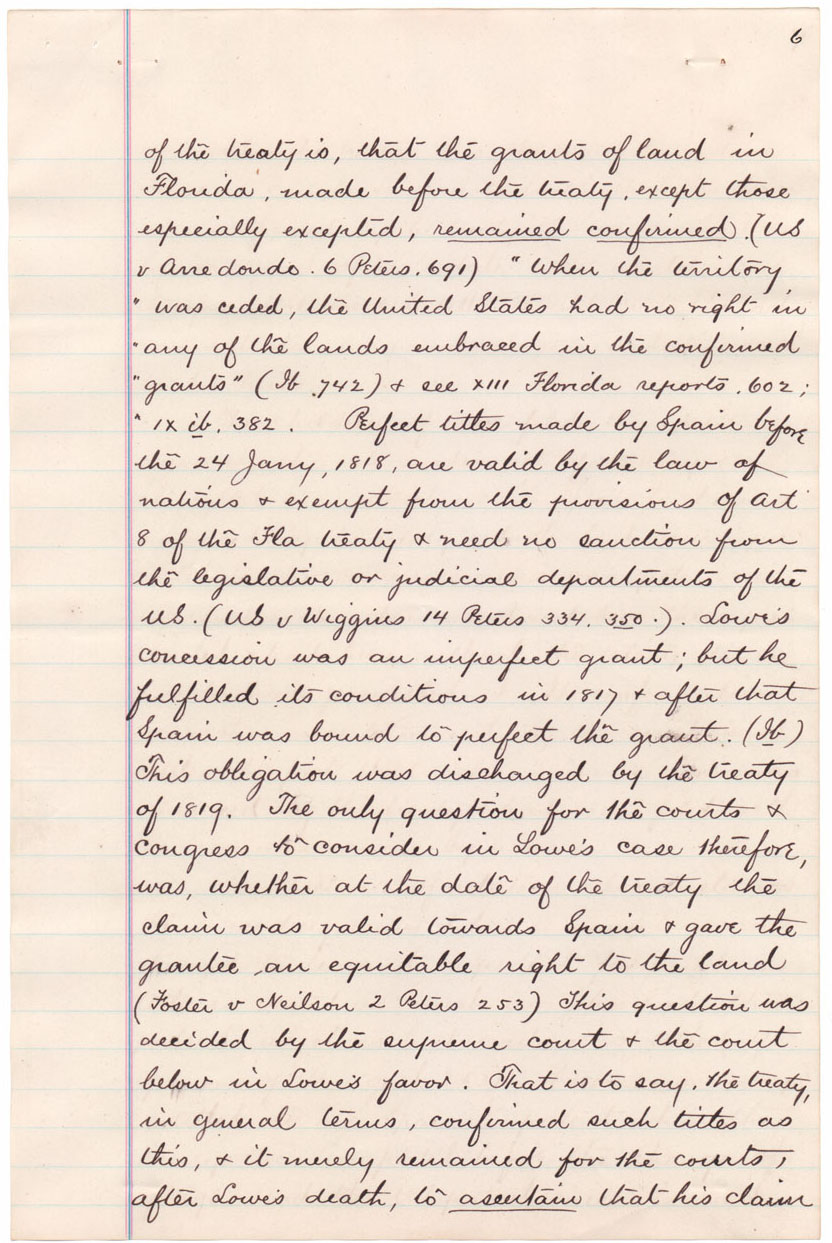 6
of the treaty is, that the grants of land in
Florida, made before the treaty, except those
especially excepted, remained confirmed. (US
v Arredondo. 6 Peters. 691) "When the territory
" was ceded, the United States had no right in
" any of the lands embraced in the confirmed
" grants" (Ib. 742) & see XIII Florida reports. 602;
" IX ib. 382. Perfect titles made by Spain before
the 24 Jany, 1818, are valid by the law of
nations & exempt from the provisions of Art
8 of the Fla treaty & need no sanction from
the legislative or judicial departments of the
US. (US v Wiggins 14 Peters 334. 350.). Lowe's
concession was an imperfect grant; but he
fulfilled its conditions in 1817 & after that
Spain was bound to perfect the grant. (Ib)
This obligation was discharged by the treaty
of 1819. The only question for the courts &
congress to consider in Lowe's case therefore,
was, whether at the date of the treaty the
claim was valid towards Spain & gave the
grantee an equitable right to the land
(Foster v Neilson 2 Peters 253) This question was
decided by the supreme court & the court
below in Lowe's favor. That is to say, the treaty,
in general terms, confirmed such titles as
this, & it merely remained for the courts,
after Lowe's death, to ascertain that his claim